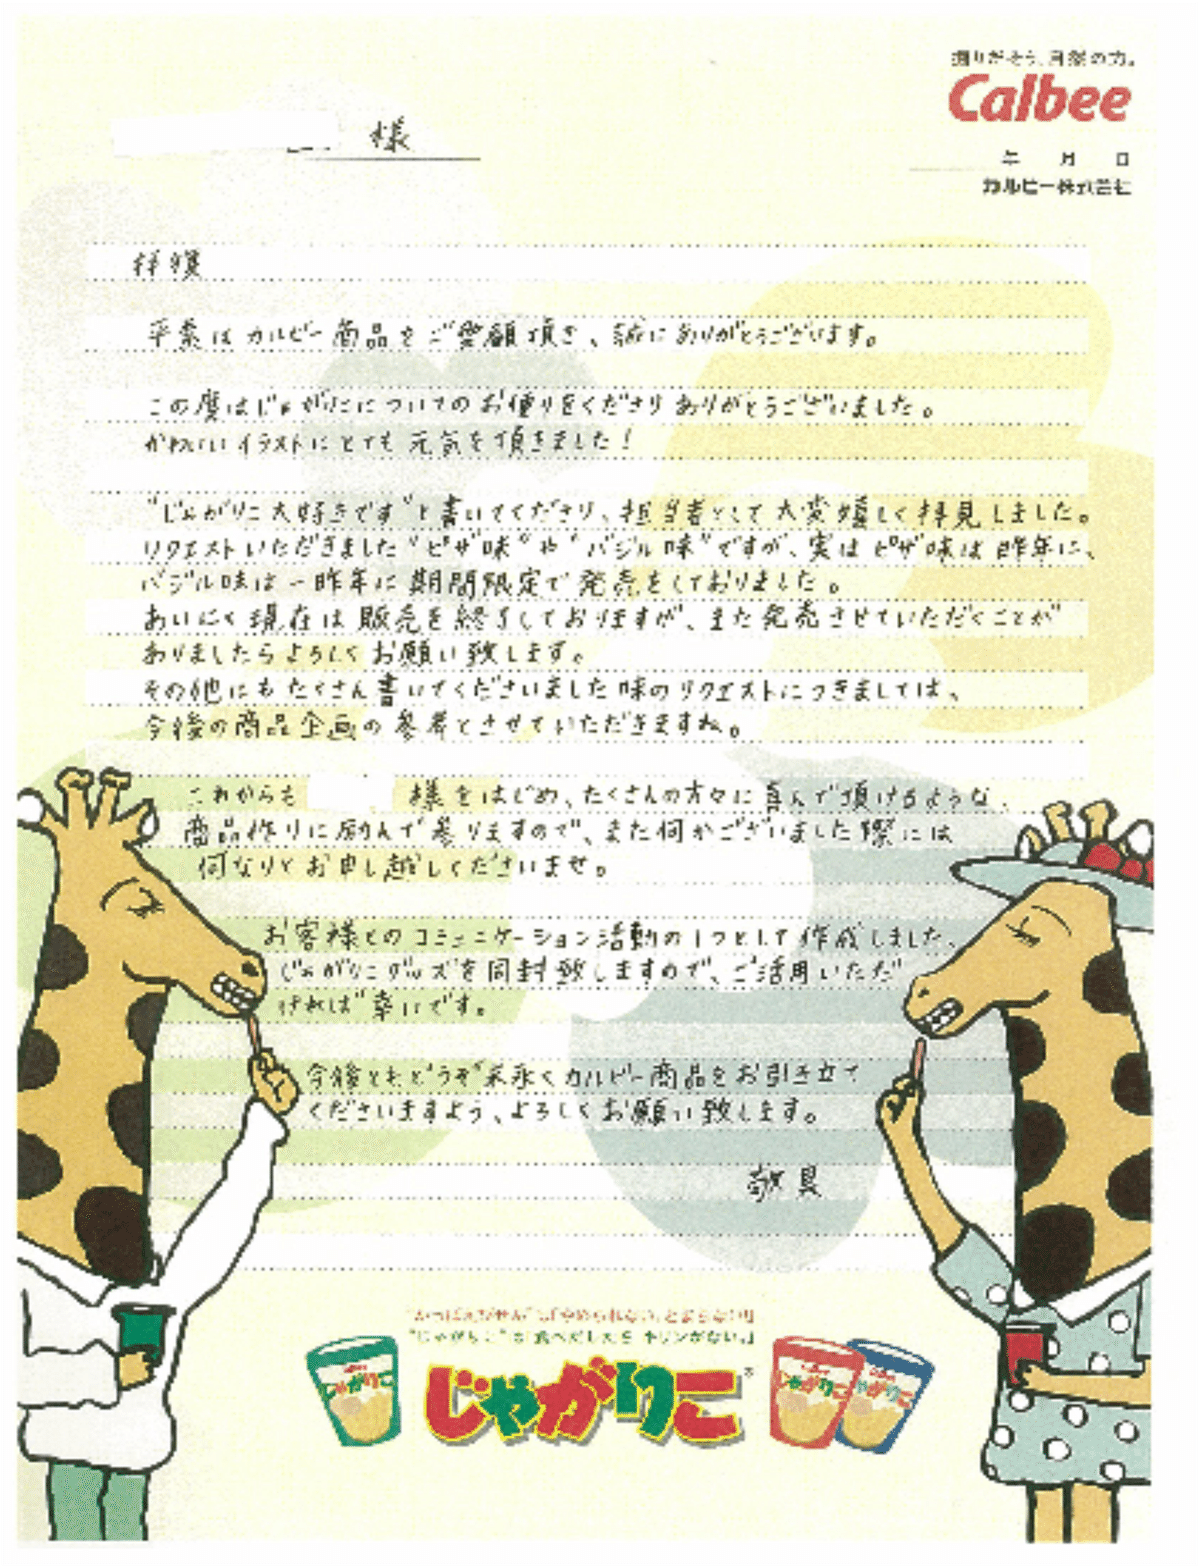 掘りだそう、自然の力。
Calbee
様
年 月 日
カルビー株式会社
拝復
平素はカルビー商品をご愛顧頂き、誠にありがとうございます。
この度はじゃがりこについてのお便りをくださりありがとうございました。
かわいいイラストにとても元気を頂きました！
"じゃがりこ大好きです"と書いてくださり、担当者として大変嬉しく拝見しました。
リクエストいただきました"ピザ味"や"バジル味"ですが、実はピザ味は昨年に、
バジル味は一昨年に期間限定で発売をしておりました。
あいにく現在は販売を終了しておりますが、また発売させていただくことが
ありましたらよろしくお願い致します。
その他にもたくさん書いてくださいました味のリクエストにつきましては、
今後の商品企画の参考とさせていただきますね。
これからも 様をはじめ、たくさんの方々に喜んで頂けるような、
商品作りに励んで参りますので、また何かございました際には
何なりとお申し越しくださいませ。
お客様とのコミュニケーション活動の1つとして作成しました、
じゃがりこグッズを同封致しますので、ご活用いただ
ければ幸いです。
今後ともどうぞ末永くカルビー商品をお引き立て
くださいますよう、よろしくお願い致します。
敬具
"かっぱえびせん"は「やめられない、とまらない!」
"じゃがりこ"は「食べだしたら キリンがない。」
じゃがりこ®
じゃがりこ
じゃがりこ
じゃがりこ